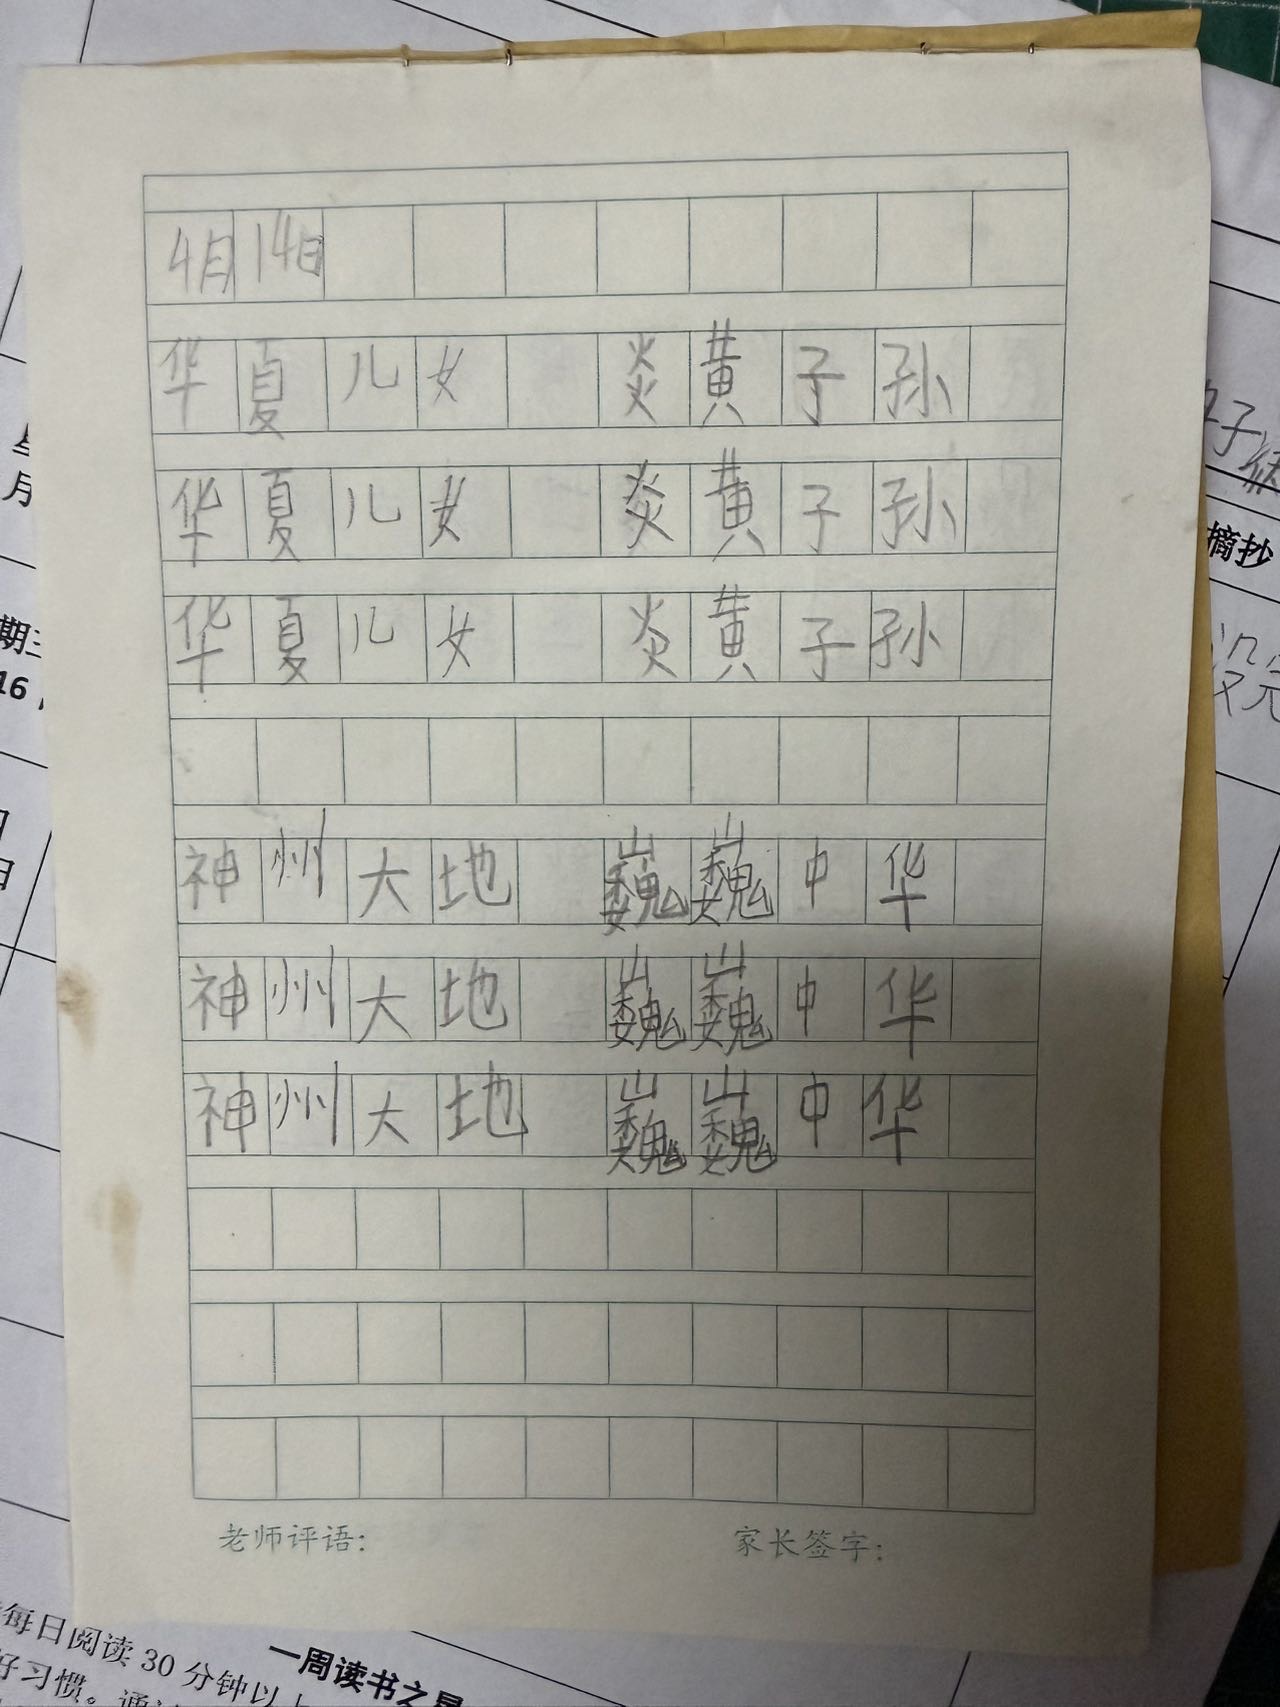 4月14日
华夏儿女 炎黄子孙
华夏儿女 炎黄子孙
华夏儿女 炎黄子孙
神州大地 巍巍中华
神州大地 巍巍中华
神州大地 巍巍中华
老师评语: 家长签字:
月
期三
16
摘抄
没完
每日阅读30分钟以上
好习惯。通过
一周读书之星